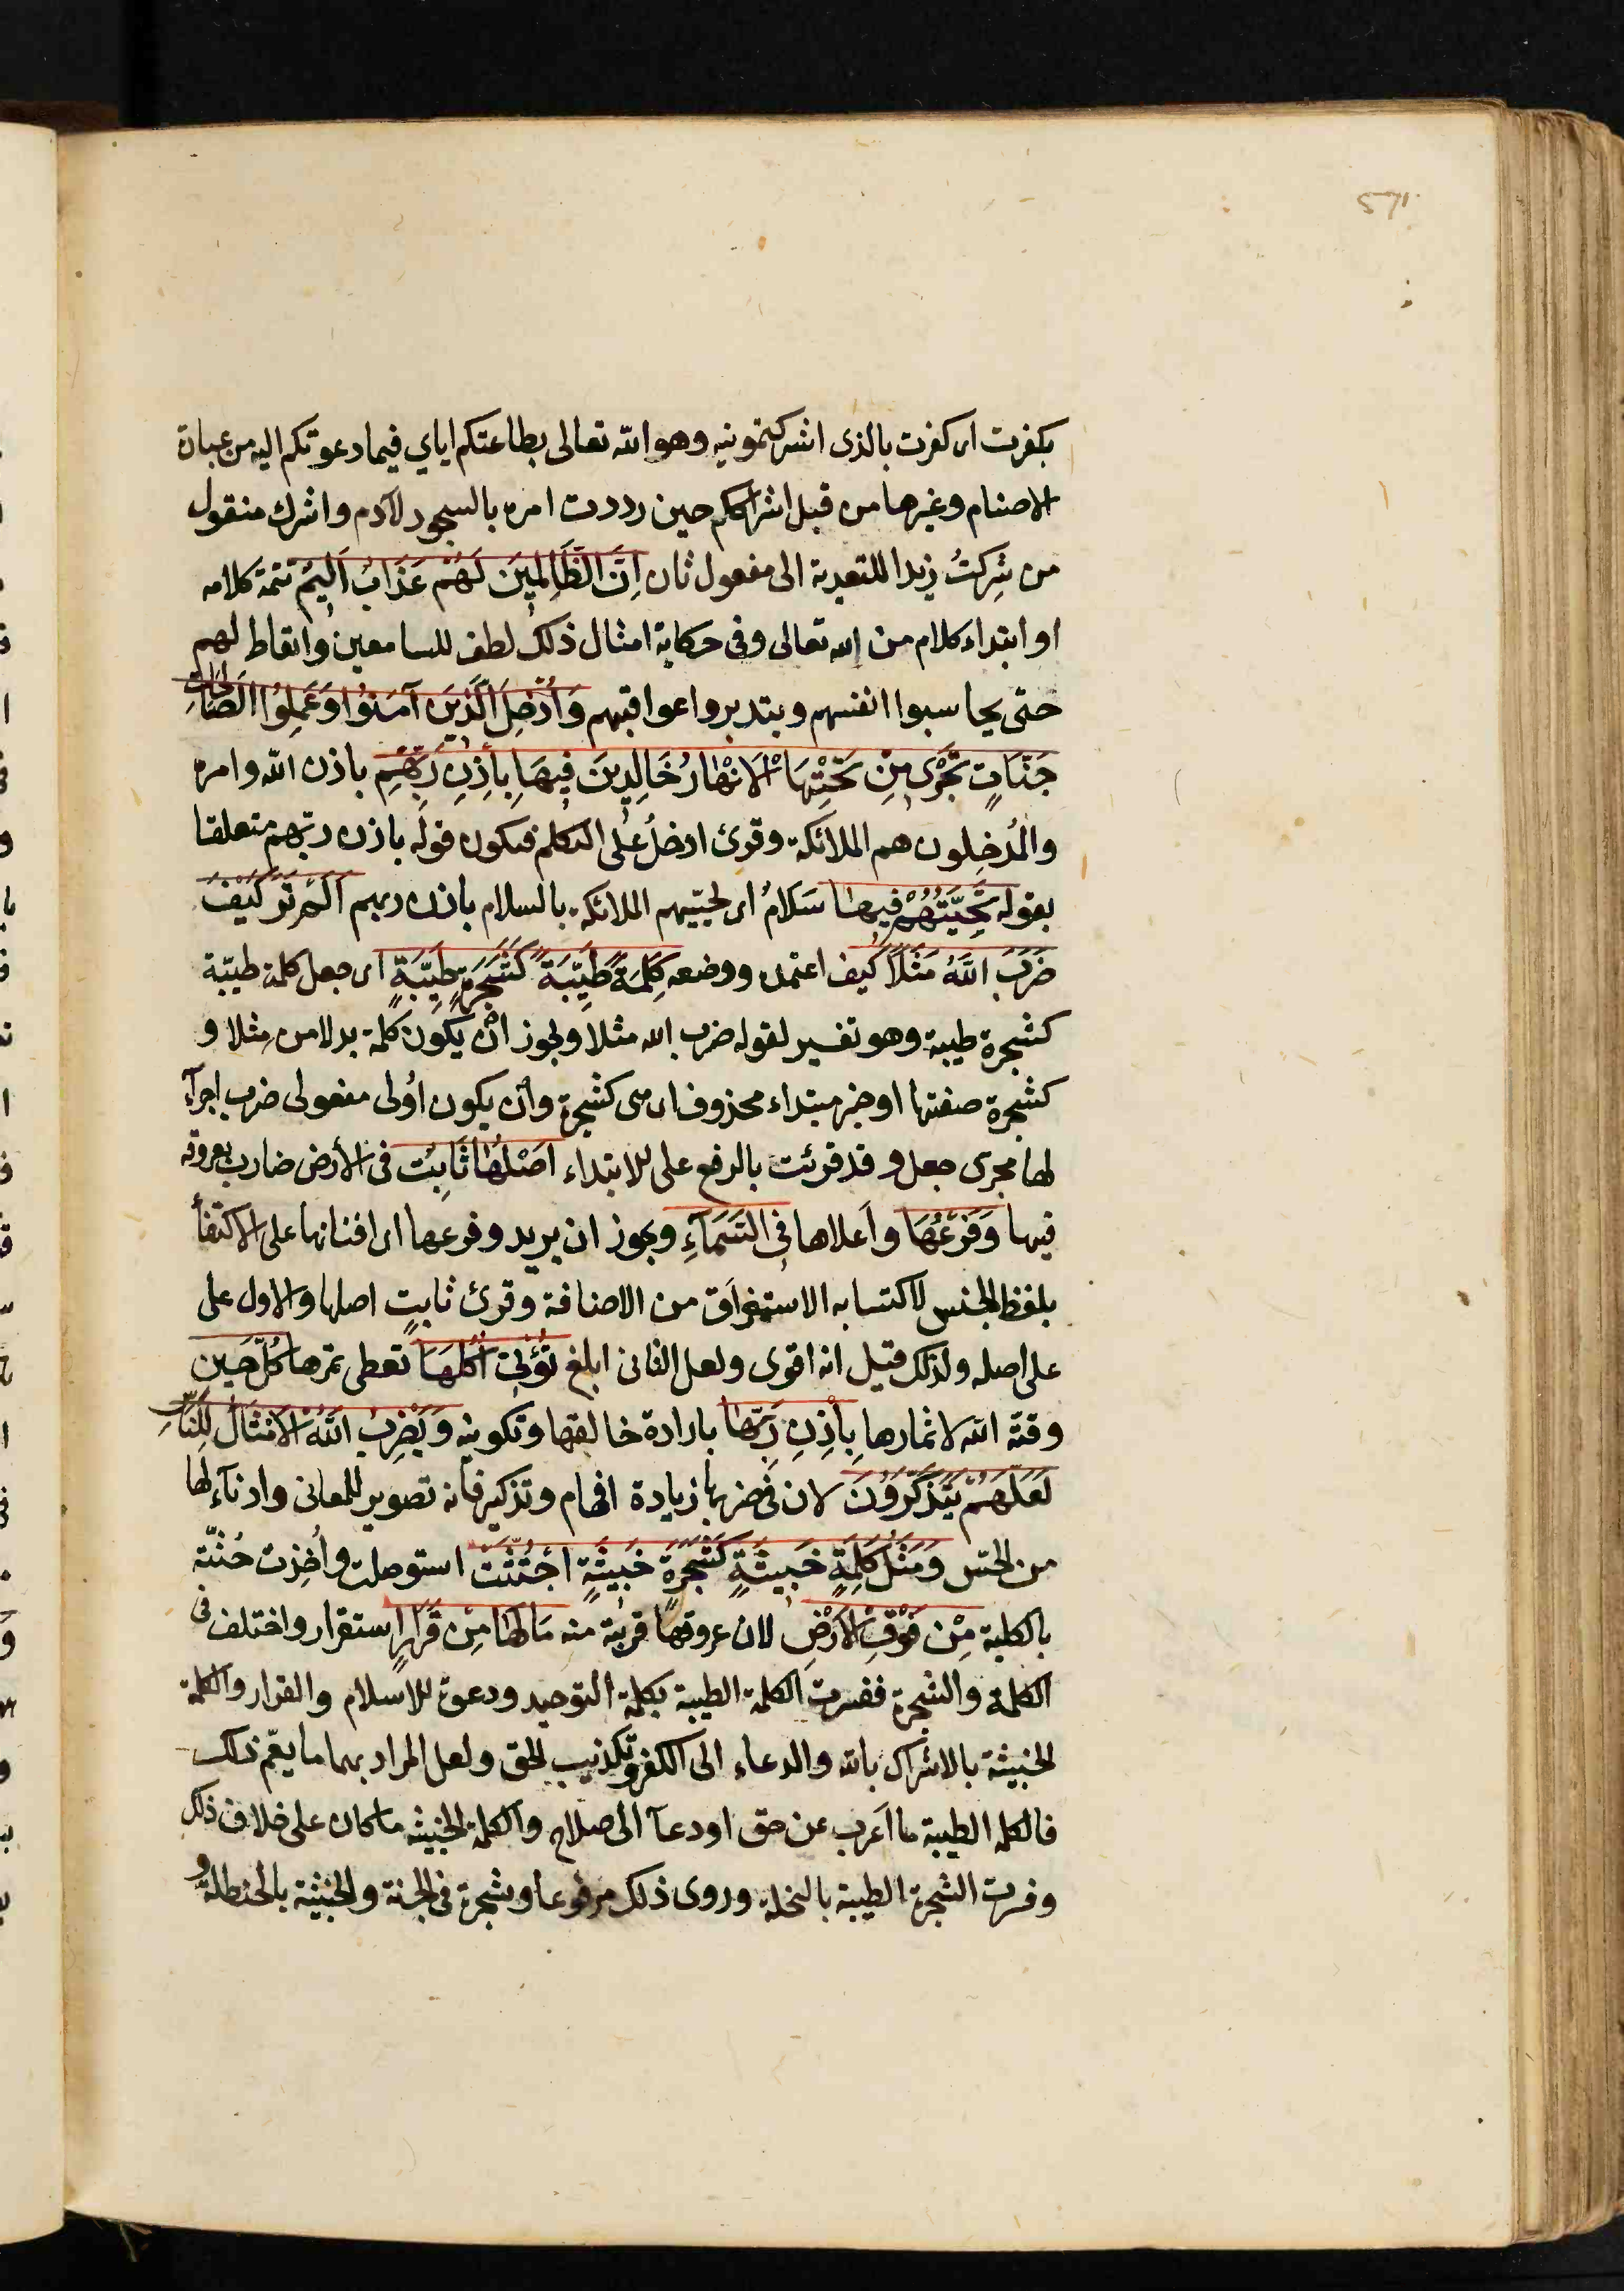 571
بكفرت اى كفرت بالذى اشركتمونيه وهو الله تعالى بطاعتكم اياي فيما دعوتكم اليه من عبادة
الاصنام وغيرها من قبل اشراككم حين رددت امره بالسجود لآدم واشرك منقول
من شَرِكتُ زيدا للتعدية الى مفعول ثان اِنَّ الظَّالِمِينَ لَهُمْ عَذَابٌ اَلِيمٌ تتمة كلامه
او ابتداء كلام من الله تعالى وفى حكاية امثال ذلك لطف للسامعين وايقاظ لهم
حتى يحاسبوا انفسهم ويتدبروا عواقبهم وَاُدْخِلَ الَّذِينَ آمَنُوا وَعَمِلُوا الصَّالِحَاتِ
جَنَّاتٍ تَجْرِى مِنْ تَحْتِهَا الْاَنْهَارُ خَالِدِينَ فِيهَا بِاِذْنِ رَبِّهِمْ باذن الله وامره
والمُدخِلون هم الملائكة وقرئ ادخلُ على التكلم فيكون قوله باذن ربّهم متعلقا
بقوله تَحِيَّتُهُمْ فِيهَا سَلَامٌ اى تحييهم الملائكة بالسلام باذن ربهم اَلَمْ تَرَ كَيْفَ
ضَرَبَ اللَّهُ مَثَلًا كيف اعتمده ووضعه كَلِمَةً طَيِّبَةً كَشَجَرَةٍ طَيِّبَةٍ اى جعل كلمة طيبّة
كشجرة طيبة وهو تفسير لقوله ضرب الله مثلا ويجوز ان يكون كلمة بدلا من مثلا و
كشجرة صفتها او خبر مبتداء محذوف اى هى كشجرة وأن يكون اُولى مفعولى ضرب اجرآءً
لها مجرى جعل وقد قرئت بالرفع على الابتداء اَصْلُهَا ثَابِتٌ فى الأرض ضارب بعروقه
فيها وَفَرْعُهَا وأعلاها فِى السَّمَآءِ ويجوز ان يريد وفرعها اى افنانها على الاكتفأ
بلفظ الجنس لاكتسابه الاستغراق من الاضافة وقرئ ثابتٍ اصلها والاول على
على اصله ولذلك قيل انه اقوى ولعل الثانى ابلغ تُؤْتِى اُكُلَهَا تعطى ثمرها كُلَّ حِينٍ
وقته الله لاثمارها بِاِذْنِ رَبِّهَا بارادة خالقها وتكوينه وَيَضْرِبُ اللَّهُ الْاَمْثَالَ لِلنَّاسِ
لَعَلَّهُمْ يَتَذَكَّرُونَ لان فى ضربها زيادة افهام وتذكير فانه تصوير للمعانى وادنآء لها
من الحسّ وَمَثَلُ كَلِمَةٍ خَبِيثَةٍ كَشَجَرَةٍ خَبِيثَةٍ اجْتُثَّتْ استوصلت وأُخذت جُثّته
بالكلية مِنْ فَوْقِ الْاَرْضِ لان عروقها قريبة منه مَا لَهَا مِنْ قَرَارٍ استقرار واختلف فى
الكلمة والشجرة ففسرت الكلمة الطيبة بكلمة التوحيد ودعوة الاسلام والقرار والكلمة
الخبيثة بالاشراك بالله والدعاء الى الكفر وتكذيب الحق ولعل المراد بهما ما يعمّ ذلك
فالكلمة الطيبة ما اَعرب عن حق او دعآ الى صلاح والكلمة الخبيثه ما كان على خلاف ذلك
وفسرت الشجرة الطيبة بالنخلة وروى ذلك مرفوعا وبشجرة فى الجنة والخبيثة بالحنظلة و